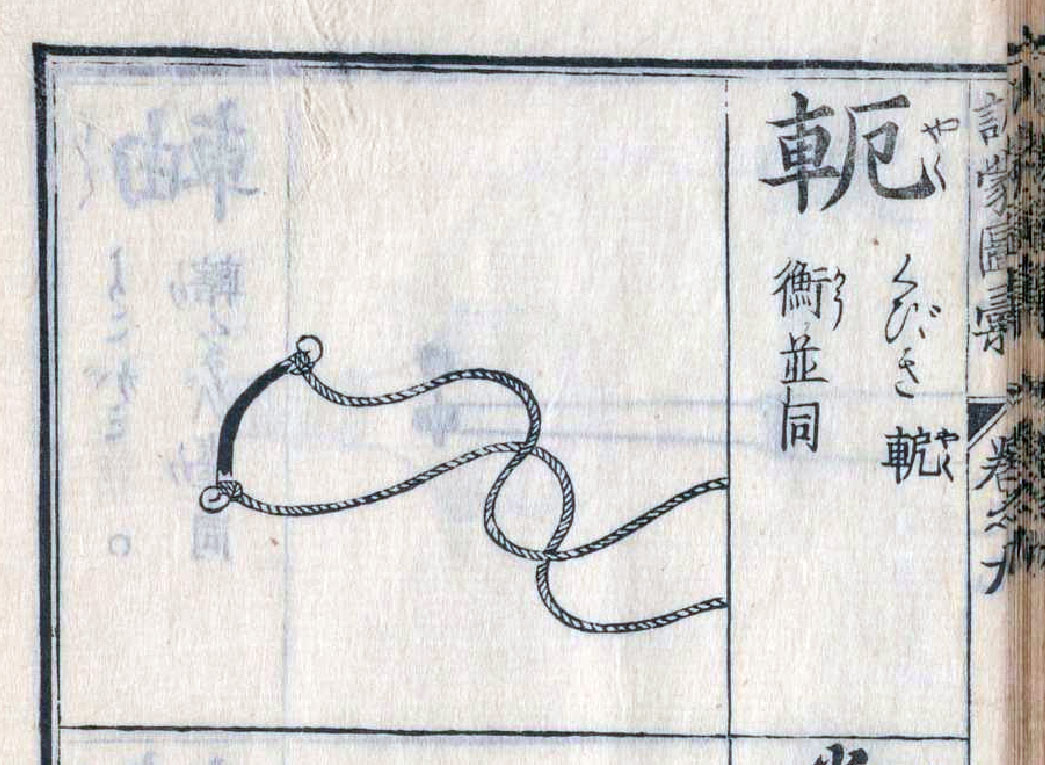 訓蒙圖彙 卷之九
軛 やく
くびき 軶 やく
衡 かう 並同